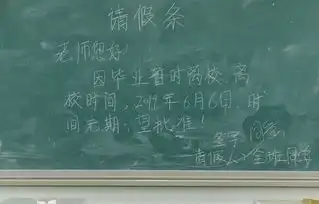 请假条
老师您好!
因毕业暂时离校,离
校时间:2019年6月6日,时
间无期:望批准!
签字 同意
请假人:全班同学